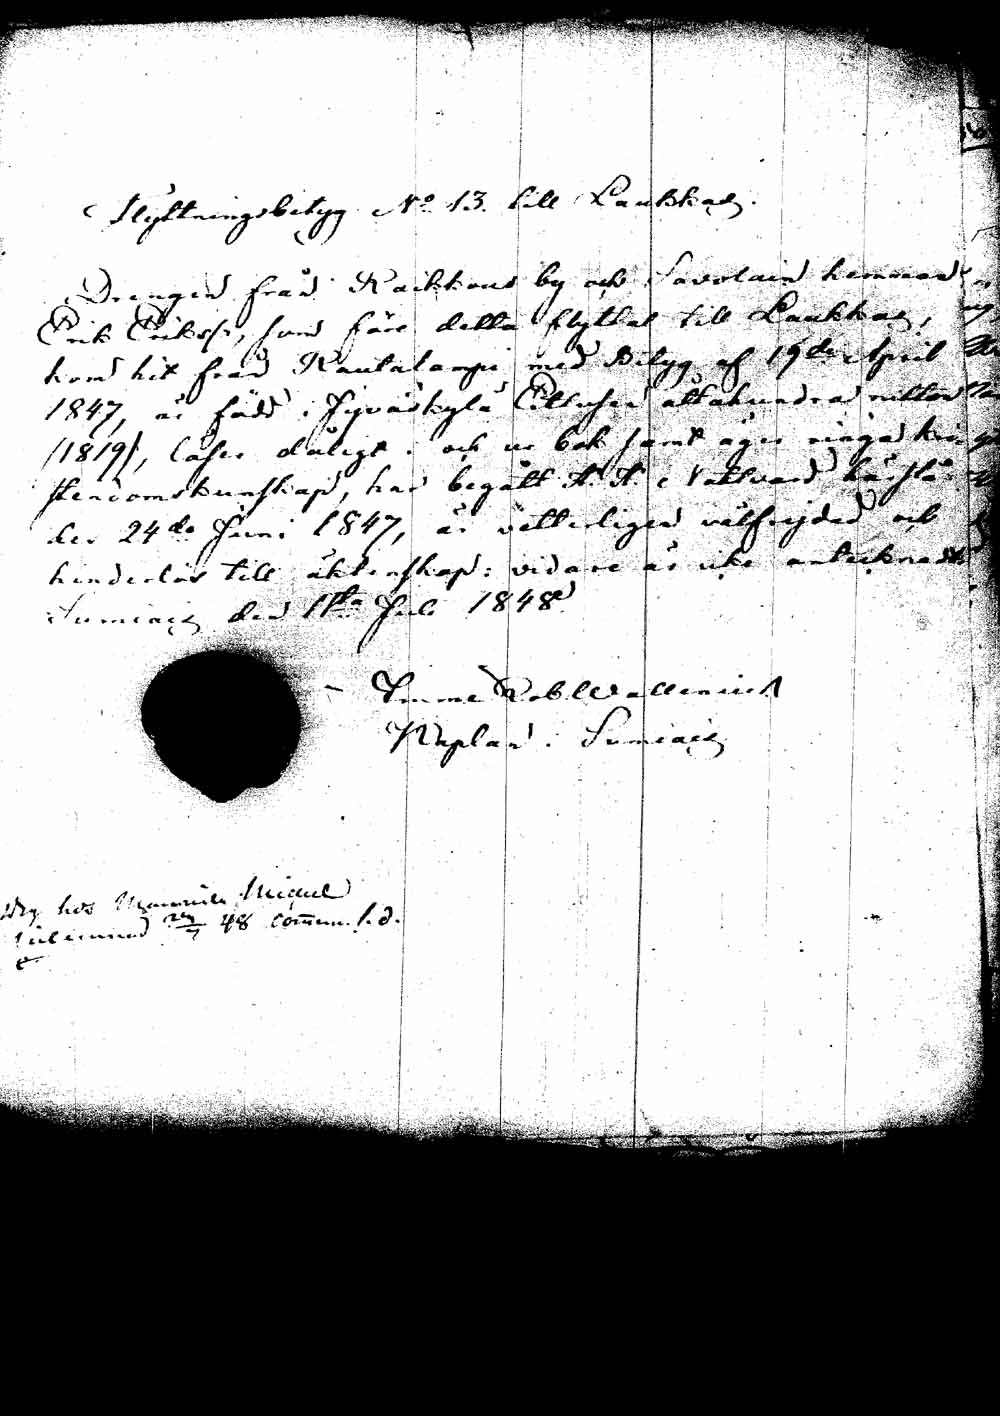 Flyttningsbetyg No 13. till Laukkas.
Drengen från Raikkous by och Savolain hemman
Erik Eriks/n, som före detta flyttat till Laukkas,
kom hit från Rautalampi med Betyg af 19de April
1847, är född i Jyväskylä Ettusen åttahundra nitton
/1819/, läser dåligt i och ur bok samt äger ringa kri-
stendomskunskap, har begått H. H. Nattvard härstä-
des 24de Juni 1847, är vetterligen välfrejdad och
hinderlös till äktenskap: vidare är icke antecknadt.
Sumiais den 11te Juli 1848
Rob Wallenius
Kaplan i Sumiais
hos Miquel
48 comm. s. d.